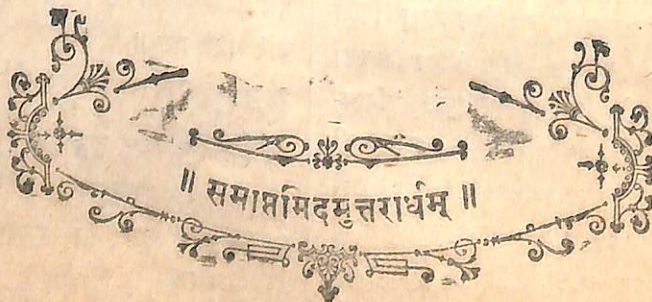 ॥ समाप्तमिदमुत्तरार्धम् ॥